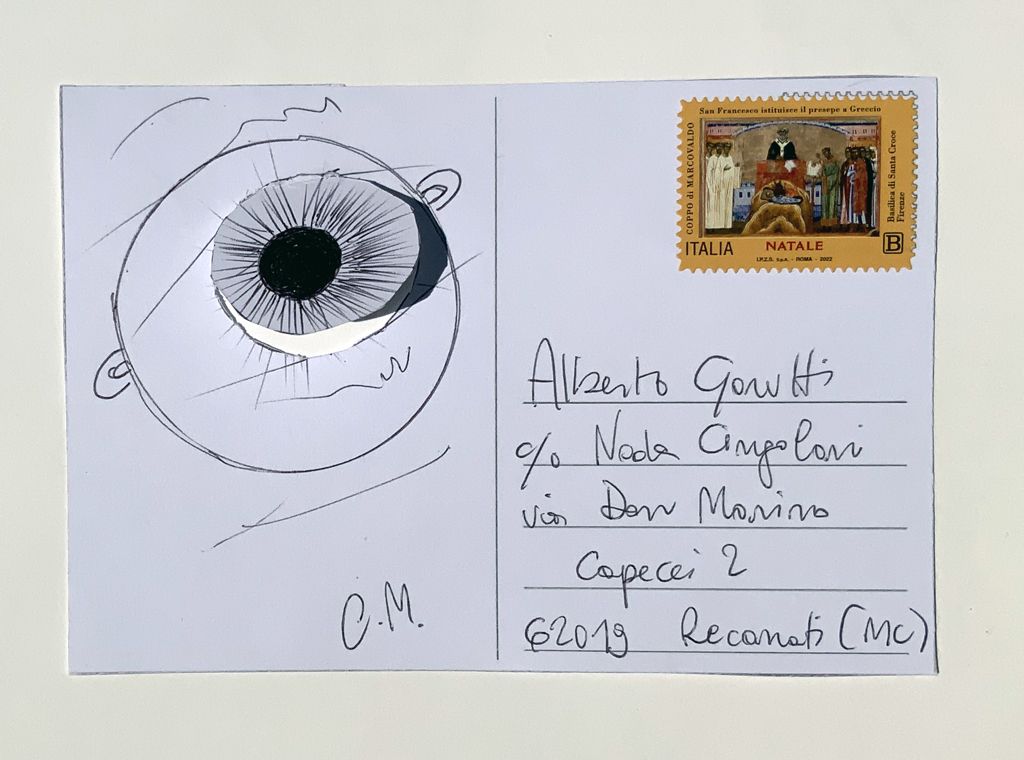 San Francesco istituisce il presepe a Greccio
COPPO di MARCOVALDO
Basilica di Santa Croce
Firenze
ITALIA
NATALE
B
I.P.Z.S. S.p.A. - ROMA - 2022
Alberto Garutti
c/o Nada Cingolani
via Don Marino
Capecci 2
62019 Recanati (MC)
C.M.